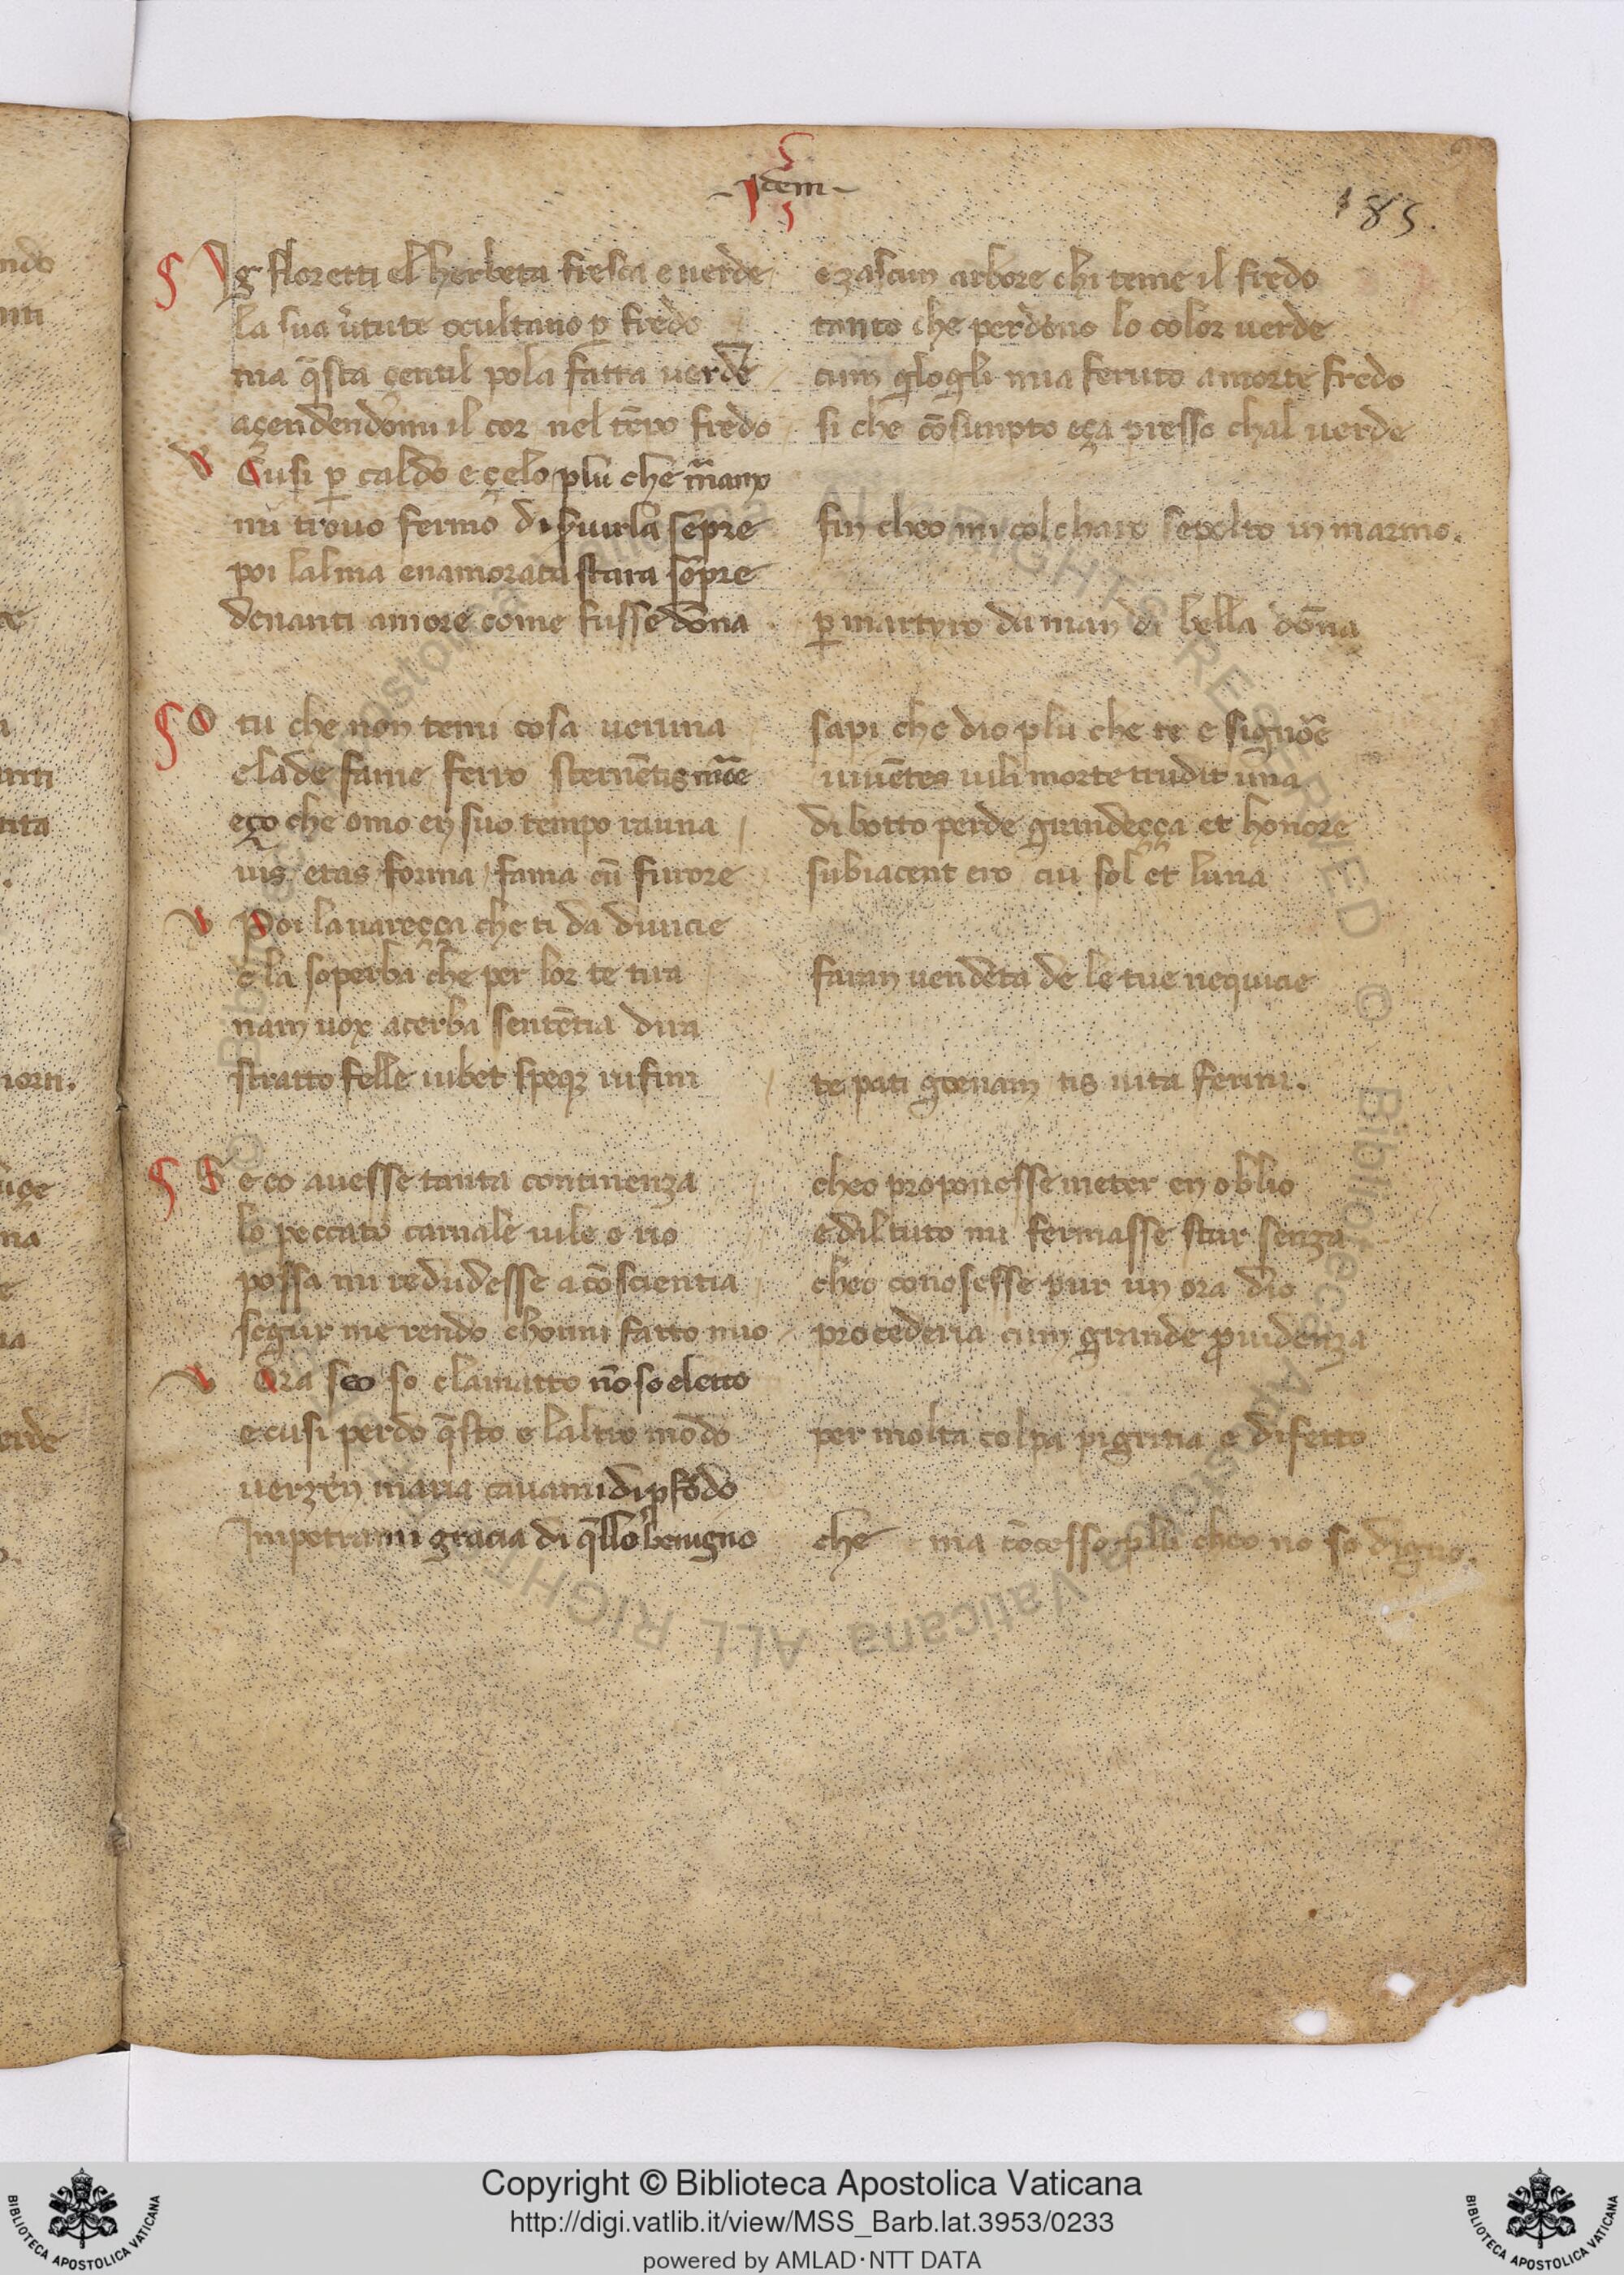 Idem
185.
Ig floretti el herbeta fresca e uerde ezascun arbore chi teme il fredo
la sua u̓tute ocultano p̱ fredo tanto che perdono lo color uerde
ma q̄sta çentil pola fatta uerde cum glogli mia feruto a morte fredo
açendendomi il cor nel tēpo fredo si che cōsunpto eça presso chal uerde
Cusi p̱ caldo e çelo plu che
mi trouo fermo di sēpre fin cheo mi colcharo sepolto in marmo.
poi lalma enamorata stara sēpre
denanti amore come fusse dōna p̱ martyro da man di bella dōna
O tu che non temi cosa ueruna sapi che dio plu che te e signor̄e
clade fame ferro sternētis uiuētes uili morte trudit una
eço che omo en suo tempo rauna di botto perde grandeçça et honore
uis etas forma fama cū furore subiacent ero cui sol et luna
Poi lauareçça che ti da diuicie
e la soperba che per lor te tira faran uendeta de le tue nequicie
nam uox acerba sentētia dira
stratto felle iubet speq3 te pati geenam tis uita feriri.
Se eo auesse tanta continenza cheo proponesse meter en oblio
lo peccato carnale uile e rio e dil tuto mi fermasse star senza
possa mi redudesse a cōscientia cheo conosesse pur un ora dio
segur me rendo chonni fatto mio procederia cum grande p̱uidenza
Ora seo so clamatto nō so eletto
e cusi perdo q̄sto e laltro mōdo per molta colpa pigricia e difetto
uerzen maria cauami di p̱fōdo
Impetrami gracia di q̄llo benigno che ma cōcesso plu cheo no so digno.
Copyright © Biblioteca Apostolica Vaticana
http://digi.vatlib.it/view/MSS_Barb.lat.3953/0233
powered by AMLAD·NTT DATA
BIBLIOTECA APOSTOLICA VATICANA
BIBLIOTECA APOSTOLICA VATICANA
© Biblioteca Apostolica Vaticana ALL RIGHTS RESERVED © Biblioteca Apostolica Vaticana ALL RIGHT